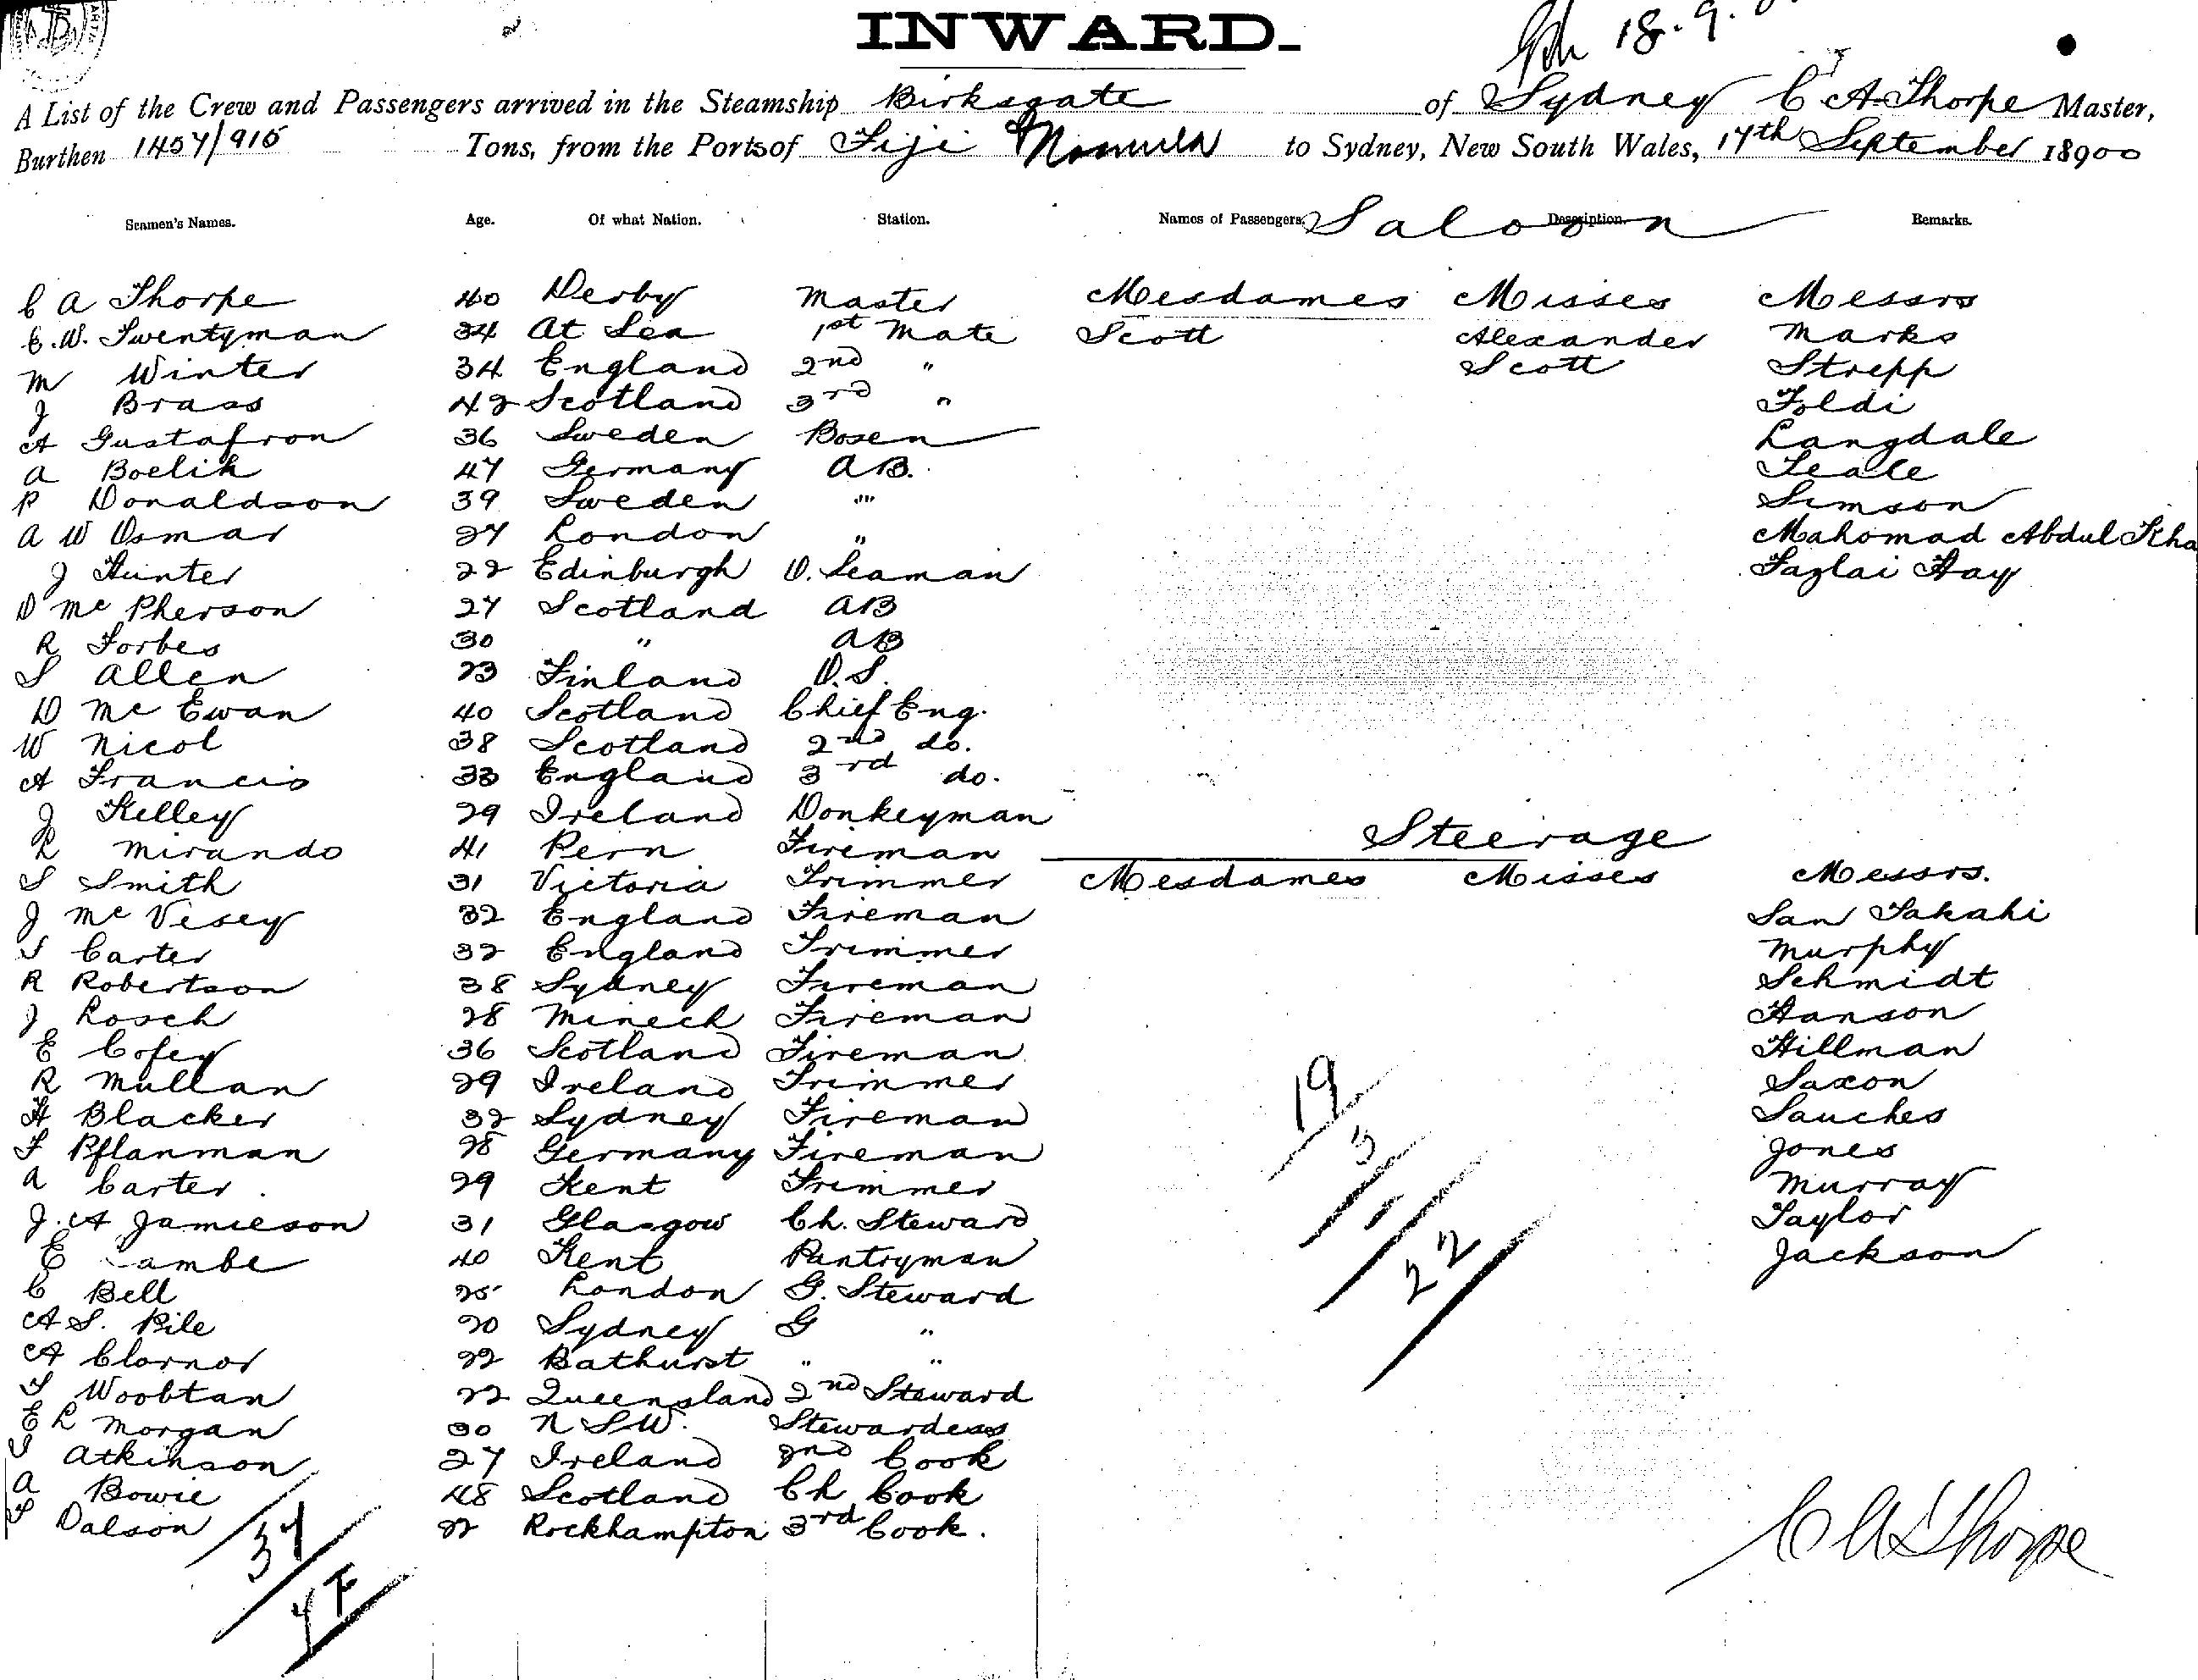 INWARD.
18.9.
A List of the Crew and Passengers arrived in the Steamship Birksgate of Sydney C A Thorpe Master,
Burthen 1457/915 Tons, from the Ports of Fiji Noumea to Sydney, New South Wales, 17th September 18900
Seamen's Names. Age. Of what Nation. Station. Names of Passengers. Saloon Description. Remarks.
C A Thorpe 40 Derby Master Mesdames Misses Messrs
C. W. Twentyman 34 At Sea 1st Mate Scott Alexander Marks
M Winter 34 England 2nd " Scott Strepp
J Brass 42 Scotland 3rd " Foldi
A Gustafson 36 Sweden Bosen Langdale
A Boelik 47 Germany AB. Teale
P Donaldson 39 Sweden " Simson
A W Osmar 27 London " Mahomad Abdul Kha
J Hunter 22 Edinburgh O. Seaman Fazlai Hay
D McPherson 27 Scotland AB
R Forbes 30 " AB
S Allen 23 Finland O.S.
D McEwan 40 Scotland Chief Eng.
W Nicol 38 Scotland 2nd do.
A Francis 33 England 3rd do.
J Kelley 29 Ireland Donkeyman Steerage
L Mirando 41 Peru Fireman
S Smith 31 Victoria Trimmer Mesdames Misses Messrs.
J McVesey 32 England Fireman San Takahi
T Carter 32 England Trimmer Murphy
R Robertson 38 Sydney Fireman Schmidt
J Losch 28 Mineck Fireman Hanson
E Cofey 36 Scotland Fireman Hillman
R Mullan 29 Ireland Trimmer Saxon
H Blacker 32 Sydney Fireman Sauches
F Pflanman 28 Germany Fireman Jones
A Carter. 29 Kent Trimmer Murray
J. A Jamieson 31 Glasgow Ch. Steward Taylor
E ambe 40 Kent Pantryman Jackson
C Bell 25 London G. Steward
A S. Pile 20 Sydney G "
A Clornor 22 Bathurst " "
T Woobtan 22 Queensland 2nd Steward
E L Morgan 30 N S W. Stewardess
T Atkinson 27 Ireland 2nd Cook
A Bowie 48 Scotland Ch Cook
T Dalson 22 Rockhampton 3rd Cook.
19
3
22
37
C A Thorpe